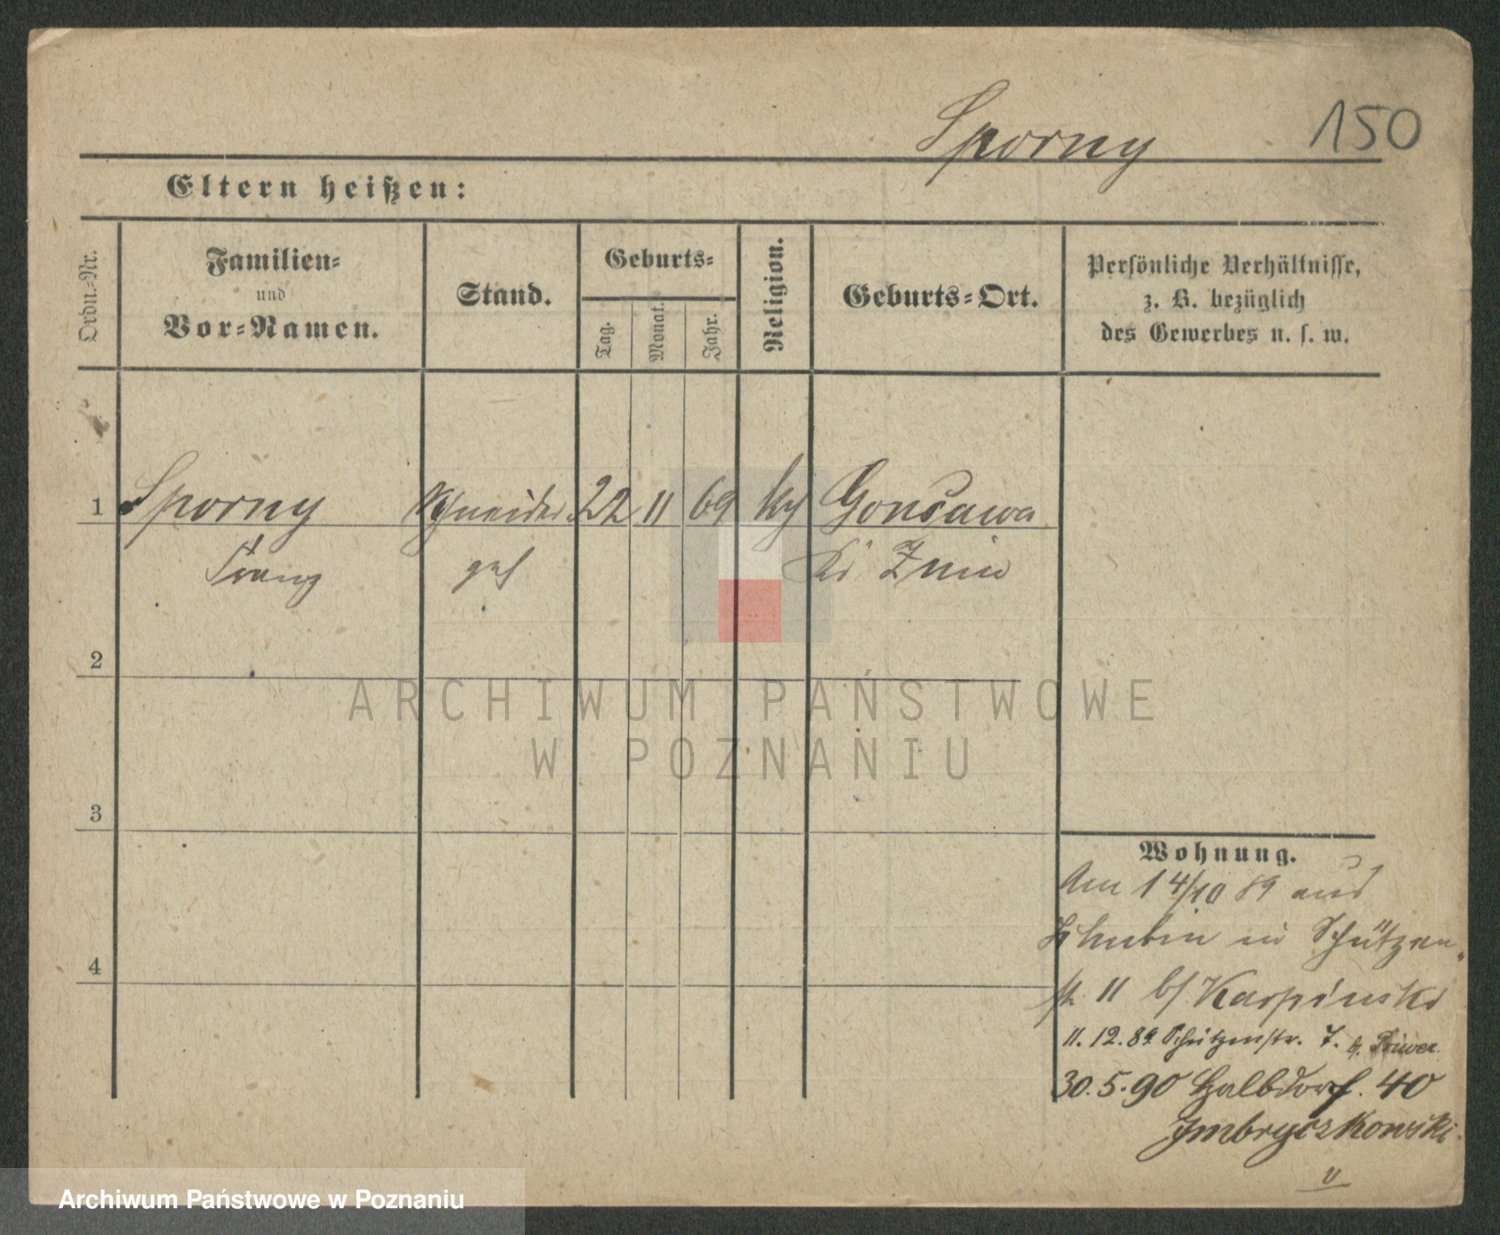 Sporny
150
Eltern heißen:
Ordn.-Nr.
Familien-
und
Vor-Namen.
Stand.
Geburts-
Tag.
Monat.
Jahr.
Religion.
Geburts-Ort.
Persönliche Verhältnisse,
z. B. bezüglich
des Gewerbes u. s. w.
1 Sporny Schneider 22 11 69 Gonsawa
Franz Znin
2
3
4
Wohnung.
Am 14/10 89 aus
in Schützen-
str 11 b/ Karpinski
11. 12. 89 Schützenstr. 7.
30. 5. 90 Halbdorf. 40
Imbryczkowski
ARCHIWUM PAŃSTWOWE
W POZNANIU
Archiwum Państwowe w Poznaniu